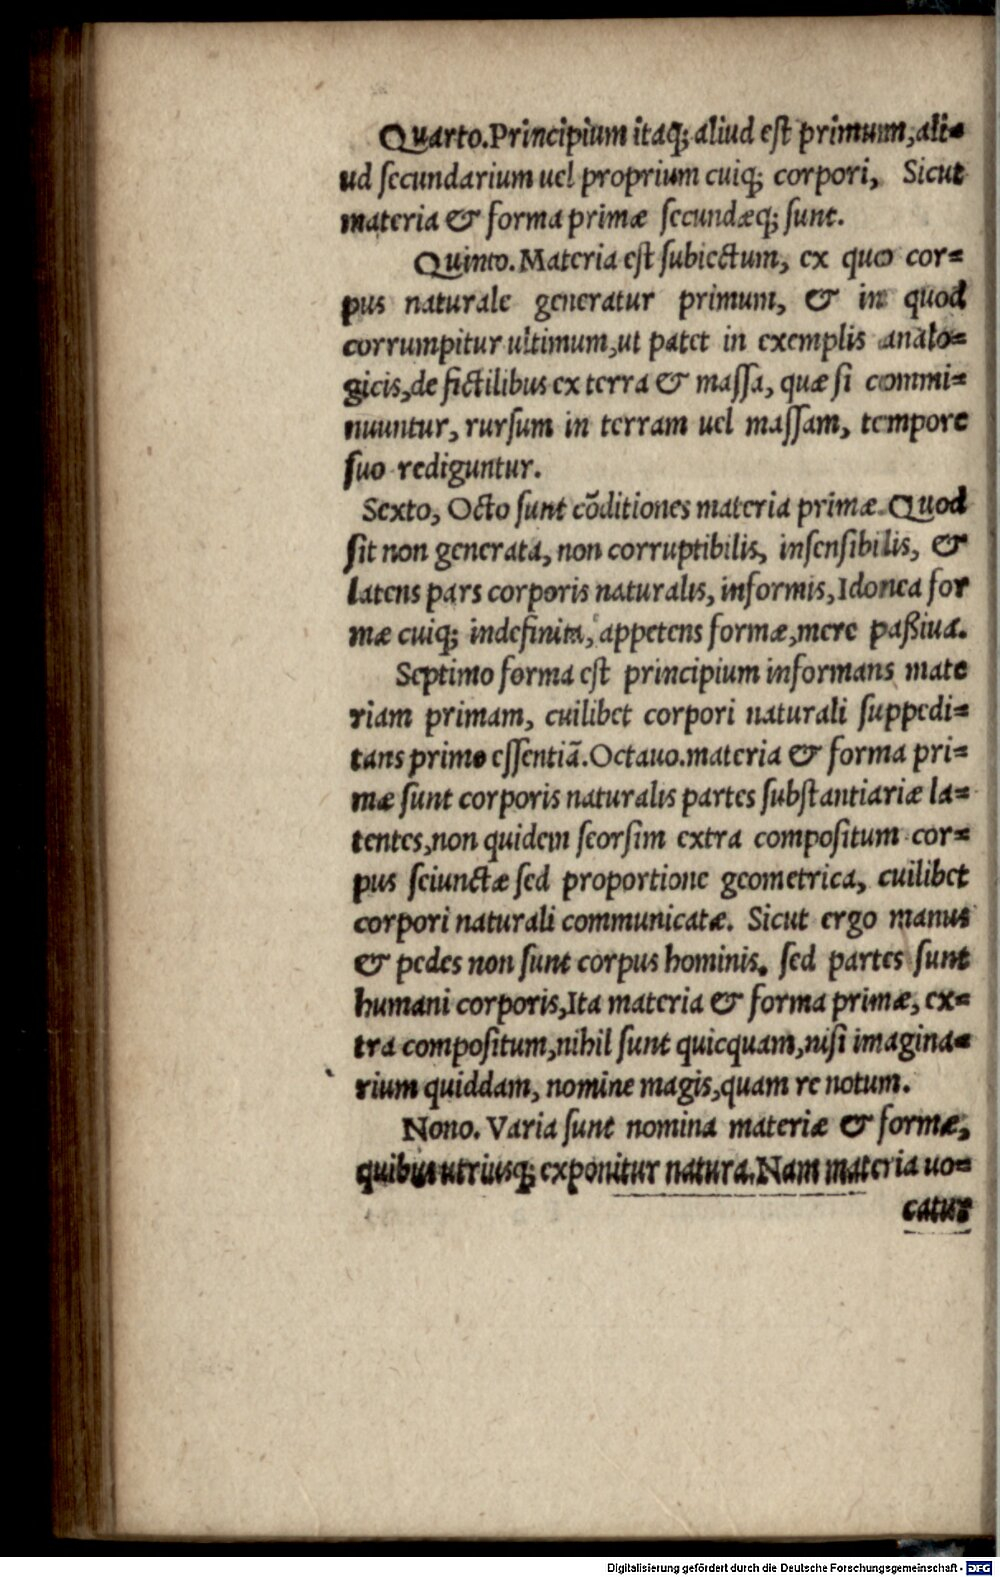 Quarto. Principium itaq; aliud est primum, ali=
ud secundarium uel proprium cuiq; corpori, Sicut
materia & forma primæ secundæq; sunt.
Quinto. Materia est subiectum, ex quo cor=
pus naturale generatur primum, & in quod
corrumpitur ultimum, ut patet in exemplis analo=
gicis, de fictilibus ex terra & massa, quæ si commi=
nuuntur, rursum in terram uel massam, tempore
suo rediguntur.
Sexto, Octo sunt cõditiones materia primæ. Quod
sit non generata, non corruptibilis, insensibilis, &
latens pars corporis naturalis, informis, Idonea for
mæ cuiq; indefinita, appetens formæ, mere paßiua.
Septimo forma est principium informans mate
riam primam, cuilibet corpori naturali suppedi=
tans primo essentiã. Octauo. materia & forma pri=
mæ sunt corporis naturalis partes substantiariæ la=
tentes, non quidem seorsim extra compositum cor=
pus seiunctæ sed proportione geometrica, cuilibet
corpori naturali communicatæ. Sicut ergo manus
& pedes non sunt corpus hominis. sed partes sunt
humani corporis, Ita materia & forma primæ, ex=
tra compositum, nihil sunt quicquam, nisi imagina=
rium quiddam, nomine magis, quam re notum.
Nono. Varia sunt nomina materiæ & formæ,
quibus utriusq; exponitur natura. Nam materia uo=
catur
Digitalisierung gefördert durch die Deutsche Forschungsgemeinschaft - DFG